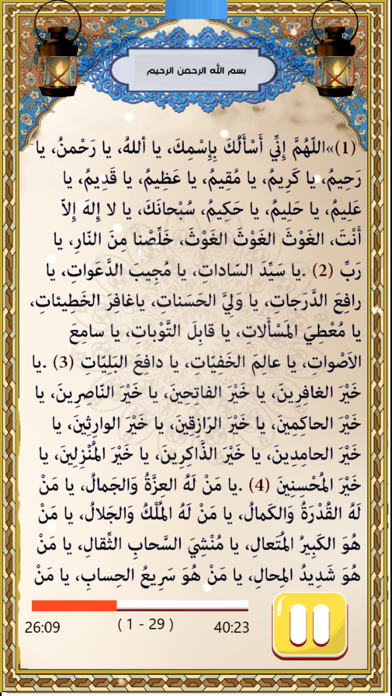 بسم الله الرحمن الرحيم
(1)»اللّهُمَّ إِنِّي أَسْأَلُكَ بِإِسْمِكَ، يا أللهُ، يا رَحْمنُ، يا
رَحِيمُ، يا كَرِيمُ، يا مُقِيمُ، يا عَظِيمُ، يا قَدِيمُ، يا
عَلِيمُ، يا حَلِيمُ، يا حَكِيمُ، سُبْحانَكَ، يا لا إلهَ إلاّ
أنْتَ، الغَوْثَ الغَوْثَ الغَوْثَ، خَلِّصْنا مِنَ النّارِ، يا
رَبِّ (2) .يا سَيِّدَ السّاداتِ، يا مُجِيبَ الدَّعَواتِ، يا
رافِعَ الدَّرَجاتِ، يا وَلِيَّ الحَسَناتِ، ياغافِرَ الخَطِيئاتِ،
يا مُعْطِيَ المَسْأَلاتِ، يا قابِلَ التَّوْباتِ، يا سامِعَ
الاَصْواتِ، يا عالِمَ الخَفِيّاتِ، يا دافِعَ البَلِيّاتِ (3) .يا
خَيْرَ الغافِرِينَ، يا خَيْرَ الفاتِحِينَ، يا خَيْرَ النّاصِرِينَ، يا
خَيْرَ الحاكِمِينَ، يا خَيْرَ الرّازِقِينَ، يا خَيْرَ الوارِثِينَ، يا
خَيْرَ الحامِدِينَ، يا خَيْرَ الذّاكِرِينَ، يا خَيْرَ المُنْزِلِينَ، يا
خَيْرَ المُحْسِنِينَ (4) .يا مَنْ لَهُ العِزَّةُ وَالجَمالُ، يا مَنْ
لَهُ القُدْرَةُ وَالكَمالُ، يا مَنْ لَهُ المُلْكُ وَالجَلالُ، يا مَنْ
هُوَ الكَبِيرُ المُتَعالِ، يا مُنْشِيَ السَّحابِ الثِّقالِ، يا مَنْ
هُوَ شَدِيدُ المِحالِ، يا مَنْ هُوَ سَرِيعُ الحِسابِ، يا مَنْ
26:09 ( 1 - 29 ) 40:23